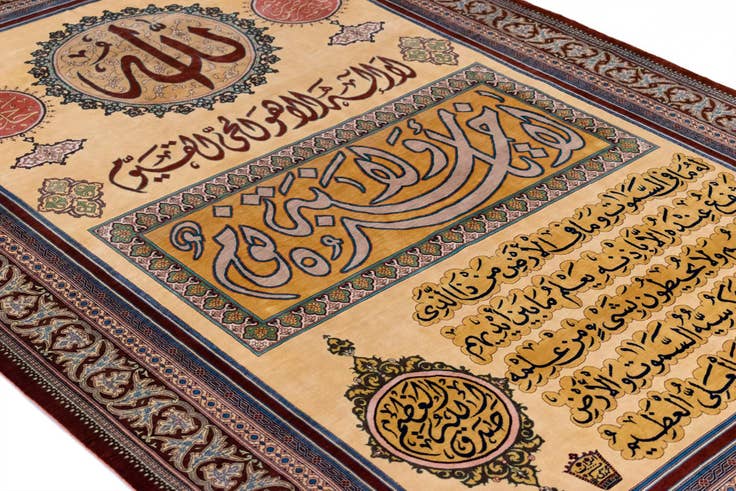 الله
لا اله الا هو الحي القيوم
لا تأخذه سنة ولا نوم
ما في السموات وما في الأرض من ذا الذي
عنده الا باذنه يعلم ما بين ايديهم
ولا يحيطون بشيء من علمه
كرسيه السموات والأرض
العلي العظيم
صدق الله العظيم